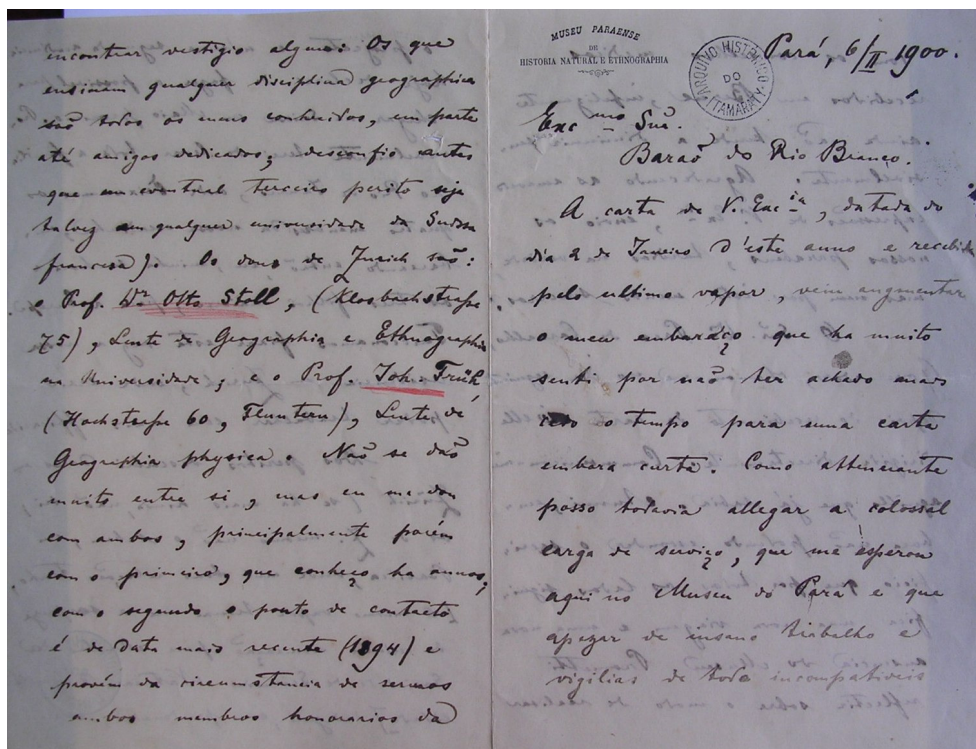 encontrar vestigio algum: Os que
ensinem qualquer disciplina geographica
são todos os mais conhecidos, em parte
até amigos dedicados; desconfio antes
que um eventual terceiro perito seja
talvez em qualquer universidade da Suissa
francesa). Os dous de Zurich são:
o Prof. Dr Otto Stoll, (Klosbachstraße
75), Lente de Geographia e Ethnographia
na Universidade, e o Prof. Joh. Früh,
(Hochstraße 60, Fluntern), Lente de
Geographia physica. Não se dão
muito entre si, mas eu me dou
com ambos, principalmente porém
com o primeiro, que conheço ha annos,
com o segundo o ponto de contacto
é de data mais recente (1894) e
provém da circumstancia de sermos
ambos membros honorarios da
MUSEU PARAENSE
DE
HISTORIA NATURAL E ETHNOGRAPHIA
ARQUIVO HISTORICO
DO
ITAMARATY
Pará, 6/II 1900.
Exc mo Snr.
Barão do Rio Branco.
A carta de V. Exc ia, datada do
dia 2 de Janeiro d'este anno e recebida
pelo ultimo vapor, vem augmentar
o meu embaraço que ha muito
senti por não ter achado mais
cedo o tempo para uma carta
embora curta. Como attenuante
posso todavia allegar a colossal
carga de serviço, que me esperou
aqui no Museu do Pará e que
apezar de insano trabalho e
vigilias de todo incompativeis